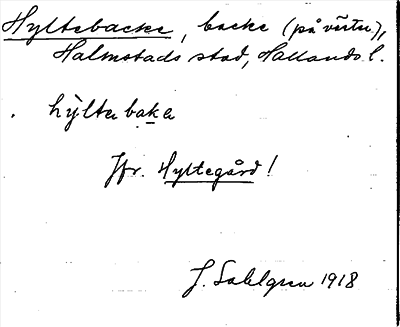 Hyltebacke, backe (på västra),
Halmstads stad, Hallands l.
hỳltabaka
Jfr. Hyltegård!
J. Sahlgren 1918